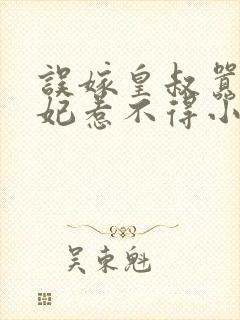 誤嫁皇叔
妃惹不得小
吴東魁